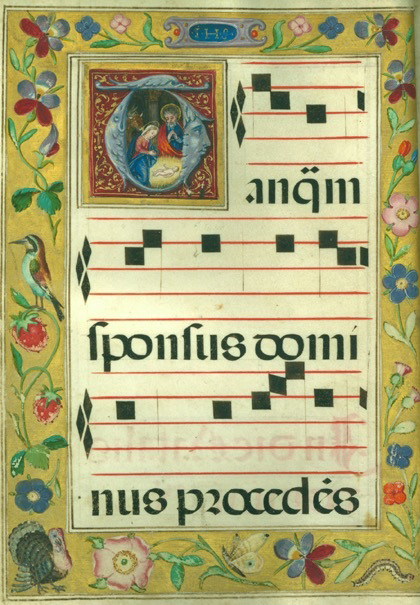 IHS
Tanq̃m
ſponſus domi
nus procedẽs